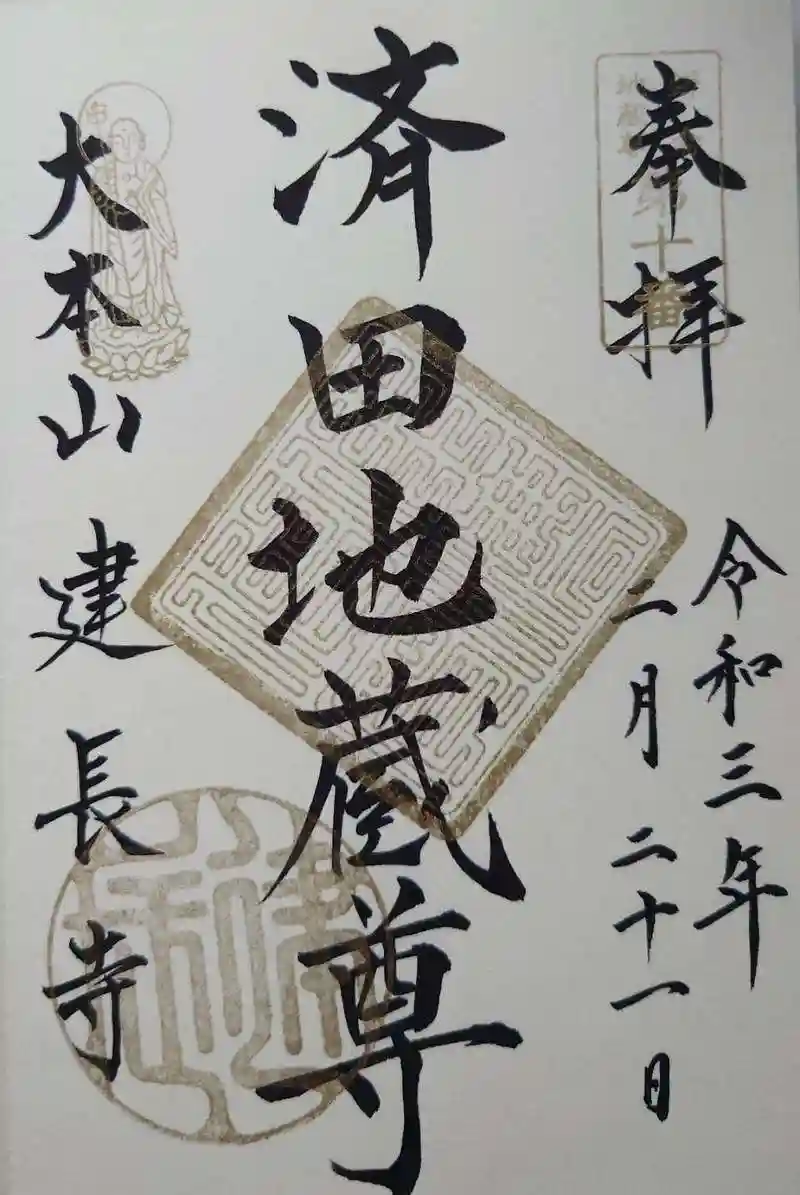 奉拝
第十番
令和三年
一月二十一日
済田地蔵尊
大本山建長寺